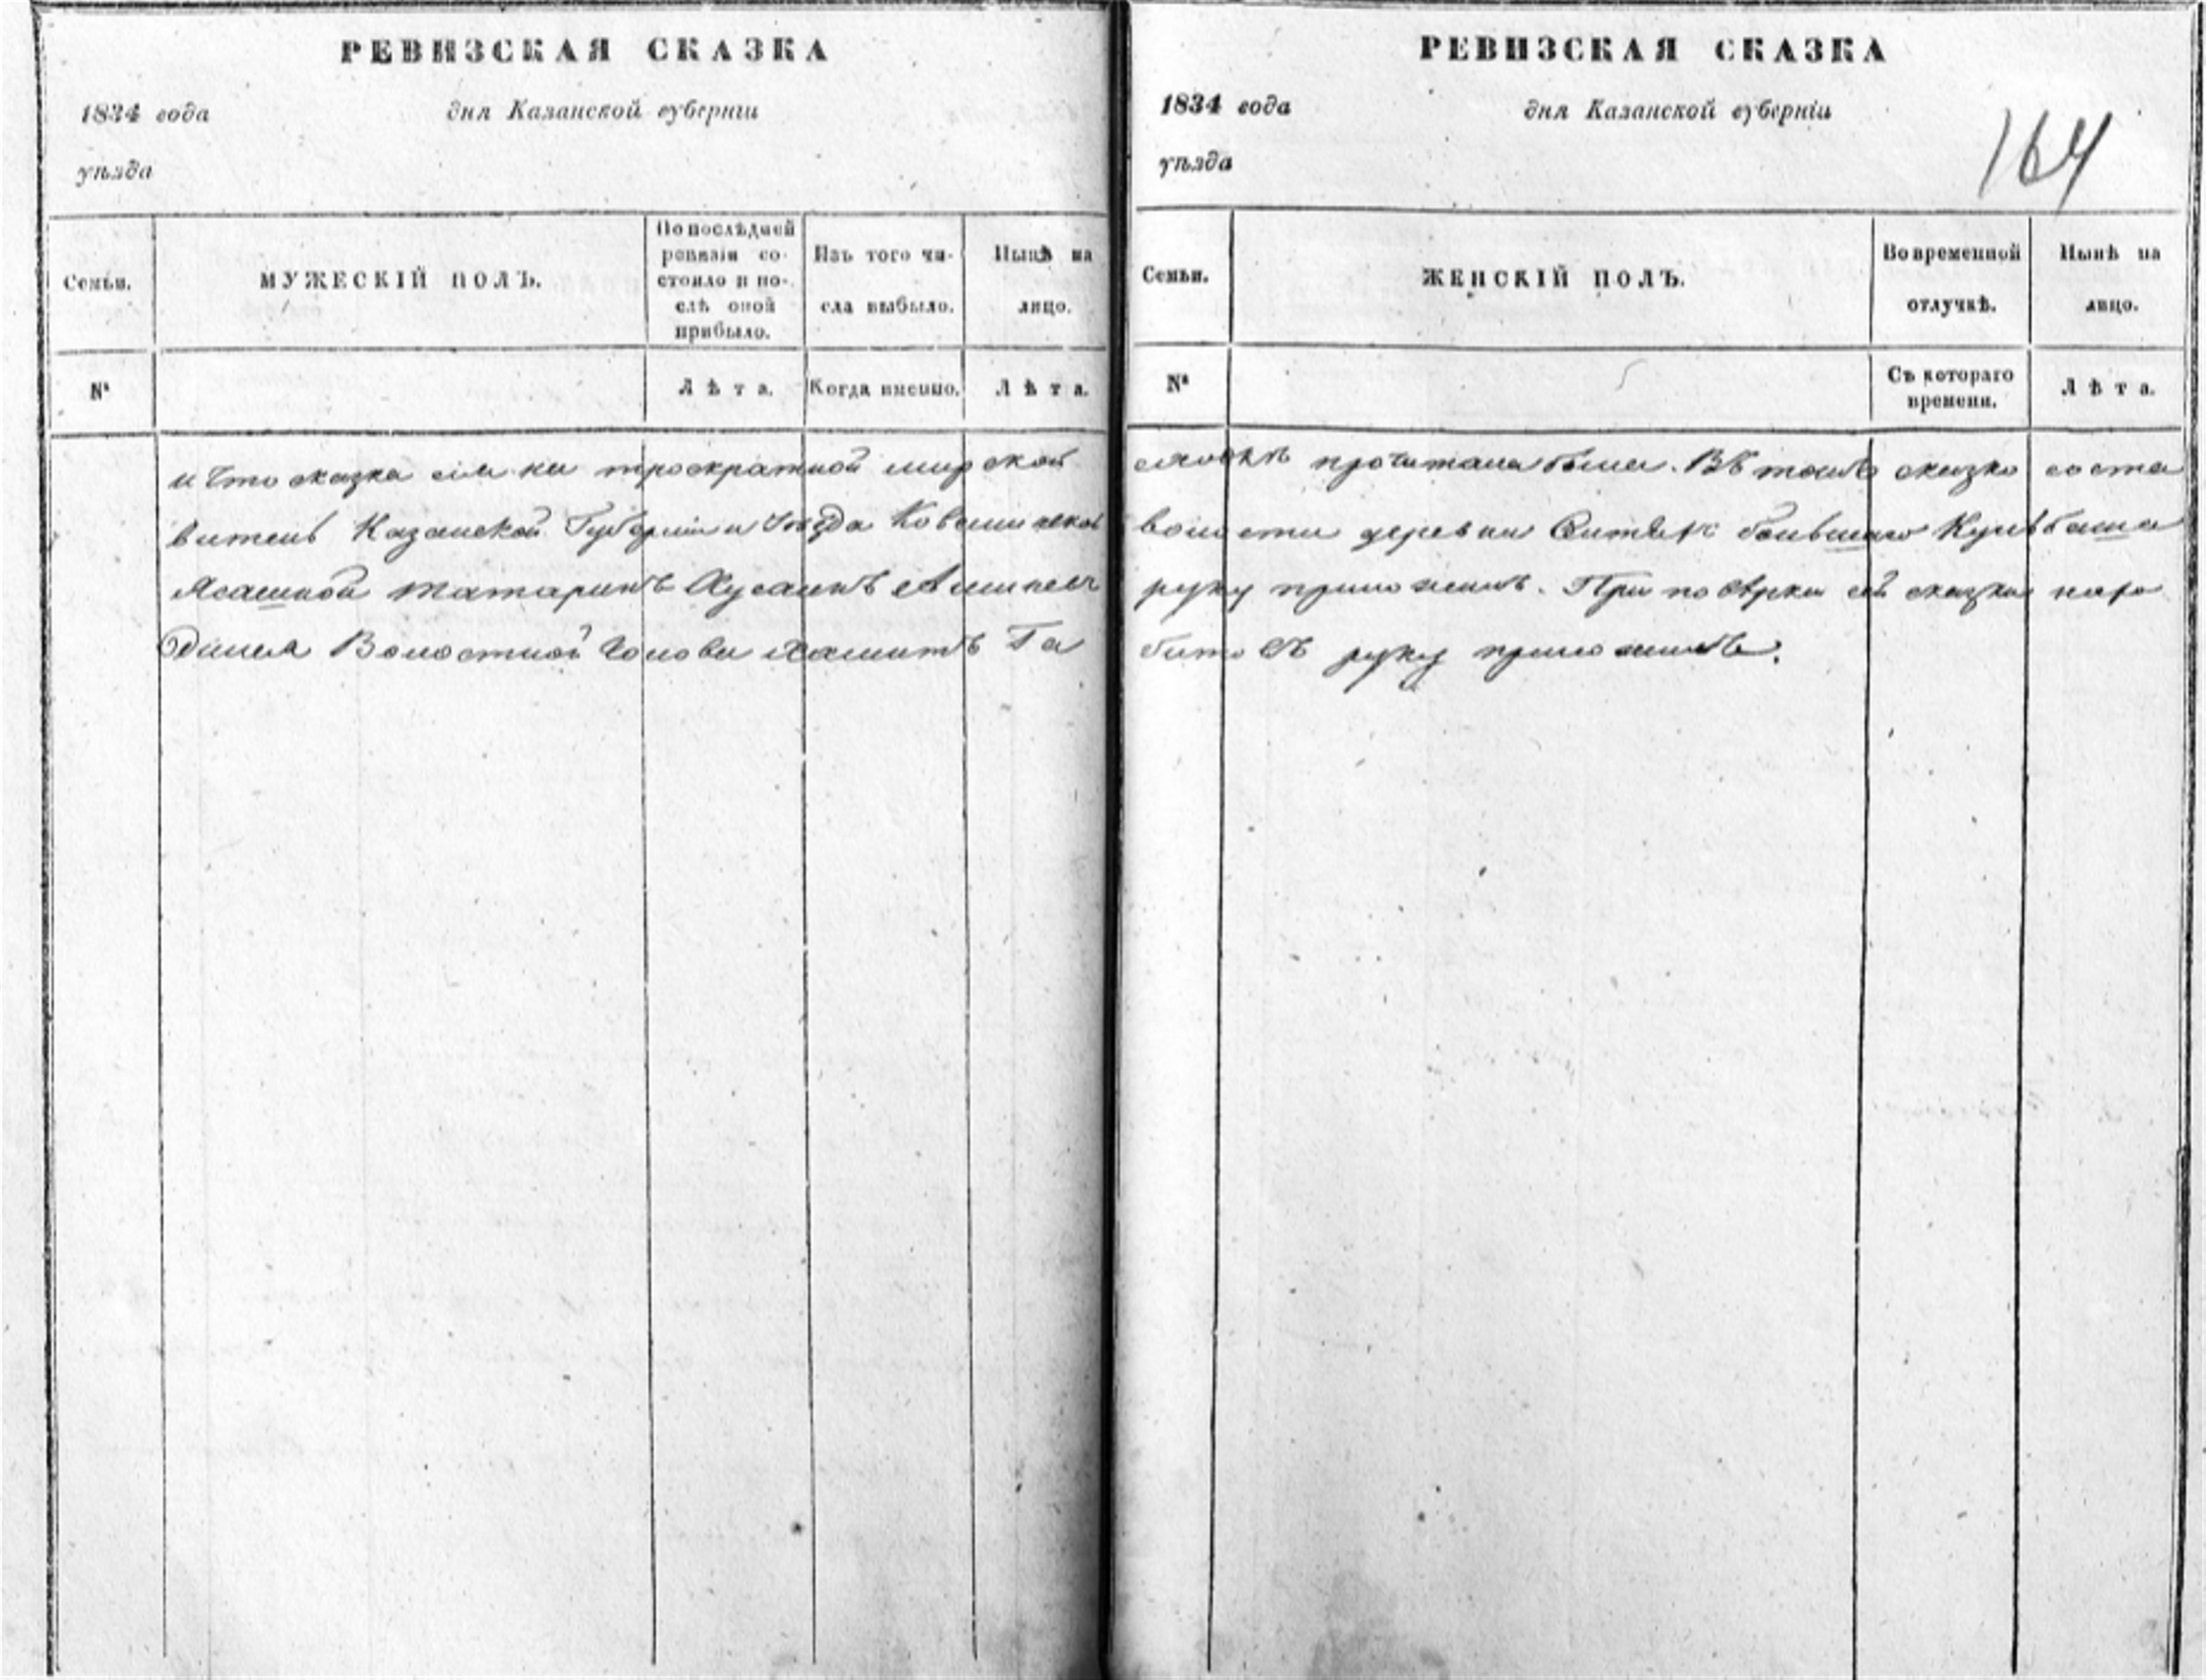 РЕВИЗСКАЯ СКАЗКА
1834 года дня Казанской губерніи
уѣзда
Семьи.
МУЖЕСКІЙ ПОЛЪ.
По послѣдней
ревизіи со-
стояло и по-
слѣ оной
прибыло.
Изъ того чи-
сла выбыло.
Нынѣ на
лицо.
№
Лѣта.
Когда именно.
Лѣта.
и что сказка сія на троекратной мирской
витель Казанской Губерніи и Уѣзда
Ясашной татаринъ Хусаинъ
Волостной Голова Хамитъ Га
РЕВИЗСКАЯ СКАЗКА
1834 года дня Казанской губерніи
уѣзда
164
Семьи.
ЖЕНСКІЙ ПОЛЪ.
Во временной
отлучкѣ.
Нынѣ на
лицо.
№
Съ котораго
времени.
Лѣта.
прочитана была. Въ томъ сказко соста
волости деревни большаго Кулбаша
руку приложилъ. При повѣрки сей сказки
битовъ руку приложилъ.